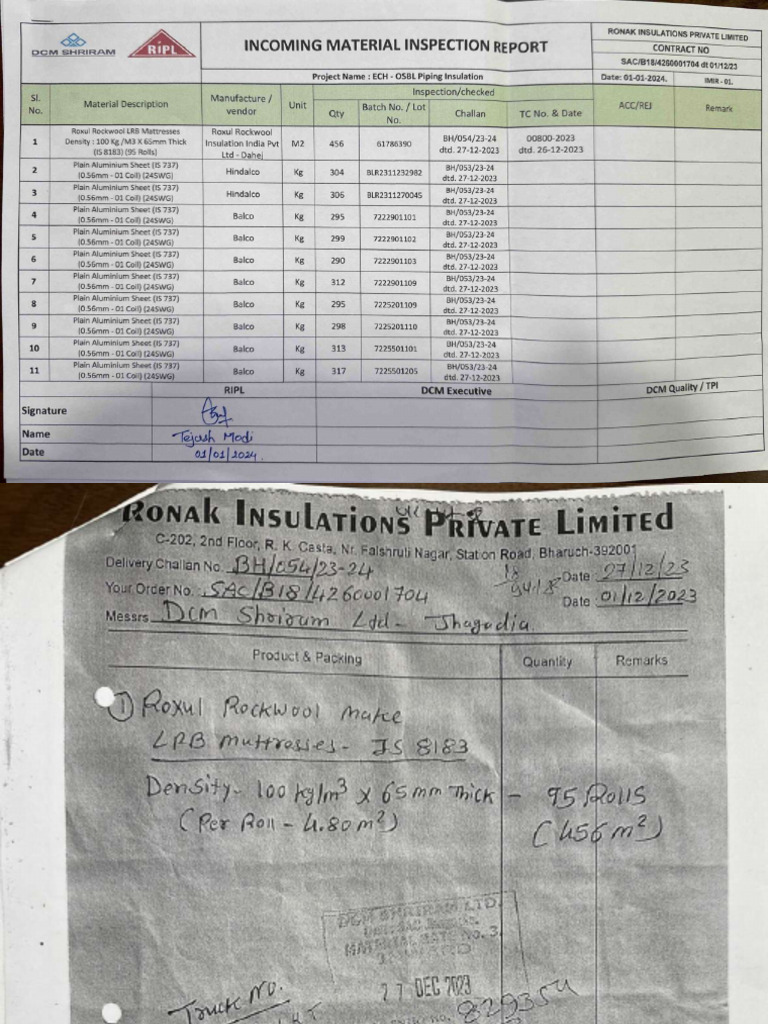 DCM SHRIRAM
RIPL
INCOMING MATERIAL INSPECTION REPORT
RONAK INSULATIONS PRIVATE LIMITED
CONTRACT NO
SAC/B18/4260001704 dt 01/12/23
Project Name : ECH - OSBL Piping Insulation
Date: 01-01-2024.
IMIR - 01.
Sl. No. Material Description Manufacture / vendor Unit Inspection/checked ACC/REJ Remark
Qty Batch No. / Lot No. Challan TC No. & Date
1 Roxul Rockwool LRB Mettresses Density : 100 Kg /M3 X 65mm Thick (IS 8183) (95 Rolls) Roxul Rockwool Insulation India Pvt Ltd - Dahej M2 456 61786390 BH/054/23-24 dtd. 27-12-2023 00800-2023 dtd. 26-12-2023
2 Plain Aluminium Sheet (IS 737) (0.56mm - 01 Coil) (24SWG) Hindalco Kg 304 BLR2311232982 BH/053/23-24 dtd. 27-12-2023
3 Plain Aluminium Sheet (IS 737) (0.56mm - 01 Coil) (24SWG) Hindalco Kg 306 BLR2311270045 BH/053/23-24 dtd. 27-12-2023
4 Plain Aluminium Sheet (IS 737) (0.56mm - 01 Coil) (24SWG) Balco Kg 295 7222901101 BH/053/23-24 dtd. 27-12-2023
5 Plain Aluminium Sheet (IS 737) (0.56mm - 01 Coil) (24SWG) Balco Kg 299 7222901102 BH/053/23-24 dtd. 27-12-2023
6 Plain Aluminium Sheet (IS 737) (0.56mm - 01 Coil) (24SWG) Balco Kg 290 7222901103 BH/053/23-24 dtd. 27-12-2023
7 Plain Aluminium Sheet (IS 737) (0.56mm - 01 Coil) (24SWG) Balco Kg 312 7222901109 BH/053/23-24 dtd. 27-12-2023
8 Plain Aluminium Sheet (IS 737) (0.56mm - 01 Coil) (24SWG) Balco Kg 295 7225201109 BH/053/23-24 dtd. 27-12-2023
9 Plain Aluminium Sheet (IS 737) (0.56mm - 01 Coil) (24SWG) Balco Kg 298 7225201110 BH/053/23-24 dtd. 27-12-2023
10 Plain Aluminium Sheet (IS 737) (0.56mm - 01 Coil) (24SWG) Balco Kg 313 7225501101 BH/053/23-24 dtd. 27-12-2023
11 Plain Aluminium Sheet (IS 737) (0.56mm - 01 Coil) (24SWG) Balco Kg 317 7225501205 BH/053/23-24 dtd. 27-12-2023
RIPL DCM Executive DCM Quality / TPI
Signature
Name Tejash Modi
Date 01/01/2024.
RONAK INSULATIONS PRIVATE LIMITED
C-202, 2nd Floor, R. K. Casta, Nr. Falshruti Nagar, Station Road, Bharuch-392001
Delivery Challan No. BH/054/23-24 Date 27/12/23
Your Order No. SAC/B18/4260001704 Date 01/12/2023
Messrs Dcm Shriram Ltd - Jhagadia.
Product & Packing Quantity Remarks
① Roxul Rockwool make
LRB Muttresses - IS 8183
Density - 100 kg/m³ x 65 mm Thick - 95 Rolls
(Per Roll - 4.80 m²) (456 m²)
DCM SHRIRAM LTD.
MATERIAL GATE No. 3.
27 DEC 2023
Truck No.
829354